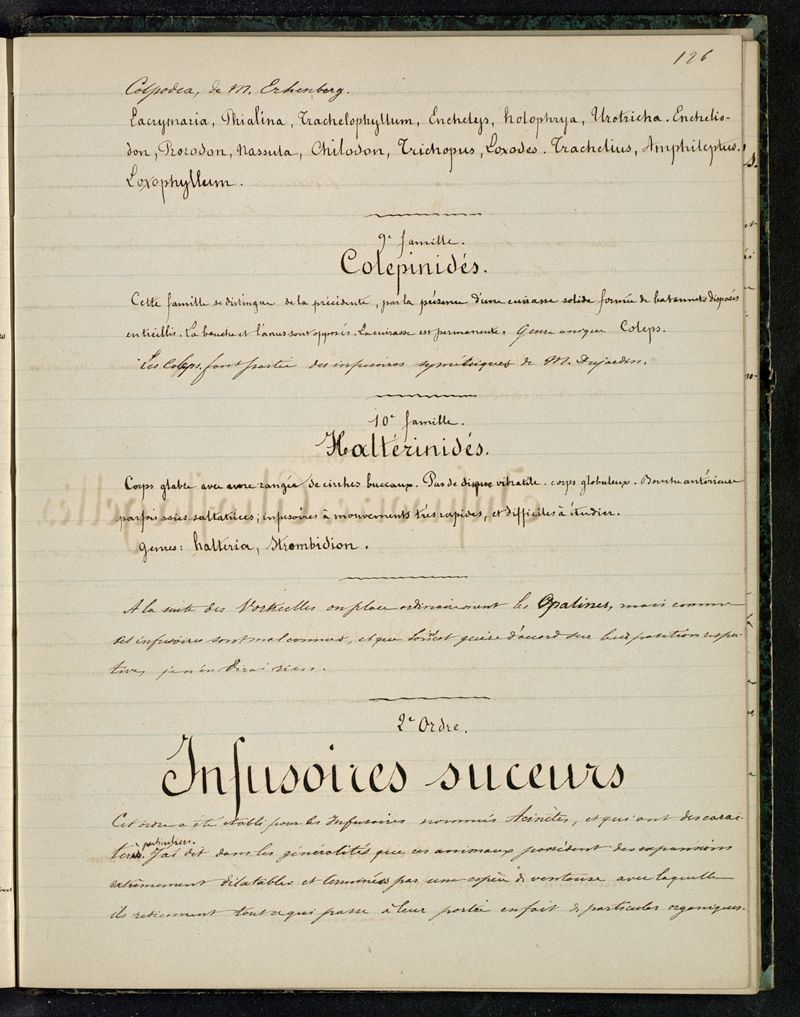 126
Colpodea, de M. Erhenberg.
Lacrymaria, Phialina, Trachelophyllum, Enchelys, holophrya, Urotricha. Enchelio-
don, Prorodon, Nassula, Chilodon, Trichopus, Loxodes. Trachelius, Amphileptus.
Loxophyllum.
9e famille.
Colepinidés.
Cette famille se distingue de la précédente, par la présence d'une cuirasse solide formée de batonnets disposés
en treillis. La bouche et l'anus sont opposés. La cuirasse est permanente. Genre unique Coleps.
Les Coleps, font partie des infusoires symétriques de M. Dujardin.
10e famille.
Haltérinidés.
Corps glabre avec une rangée de cirrhes buccaux. Pas de disque vibratile. corps globuleux. Bouche antérieure
parfois soies saltatrices; infusoires à mouvements très rapides, et difficiles à étudier.
genres: halteria, Strombidion.
A la suite des Vorticelles on place ordinairement les Opalines, mais comme
ces infusoires sont mal connus, et que l'on n'est guère d'accord sur leur position respec-
tive, je n'en dirai rien.
2e Ordre.
Infusoires suceurs
Cet ordre a été établi pour les Infusoires nommés Acinètes, et qui ont des carac-
tères particuliers. J'ai dit dans les généralités que ces animaux possèdent des expansions
extrêmement dilatables et terminées par une espèce de ventouse avec laquelle
ils retiennent tout ce qui passe à leur portée en fait de particules organiques.